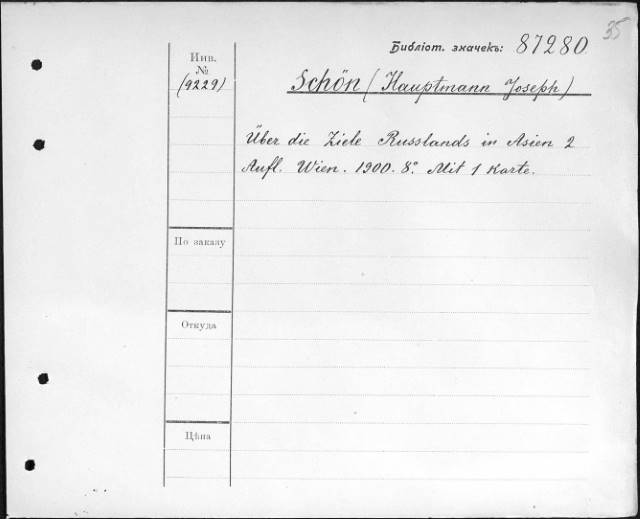 35
Библіот. значекъ: 87280
Инв.
№
(9229)
Schön (Hauptmann Joseph)
Über die Ziele Russlands in Asien 2
Aufl. Wien. 1900. 8°. Mit 1 Karte.
По заказу
Откуда
Цѣна